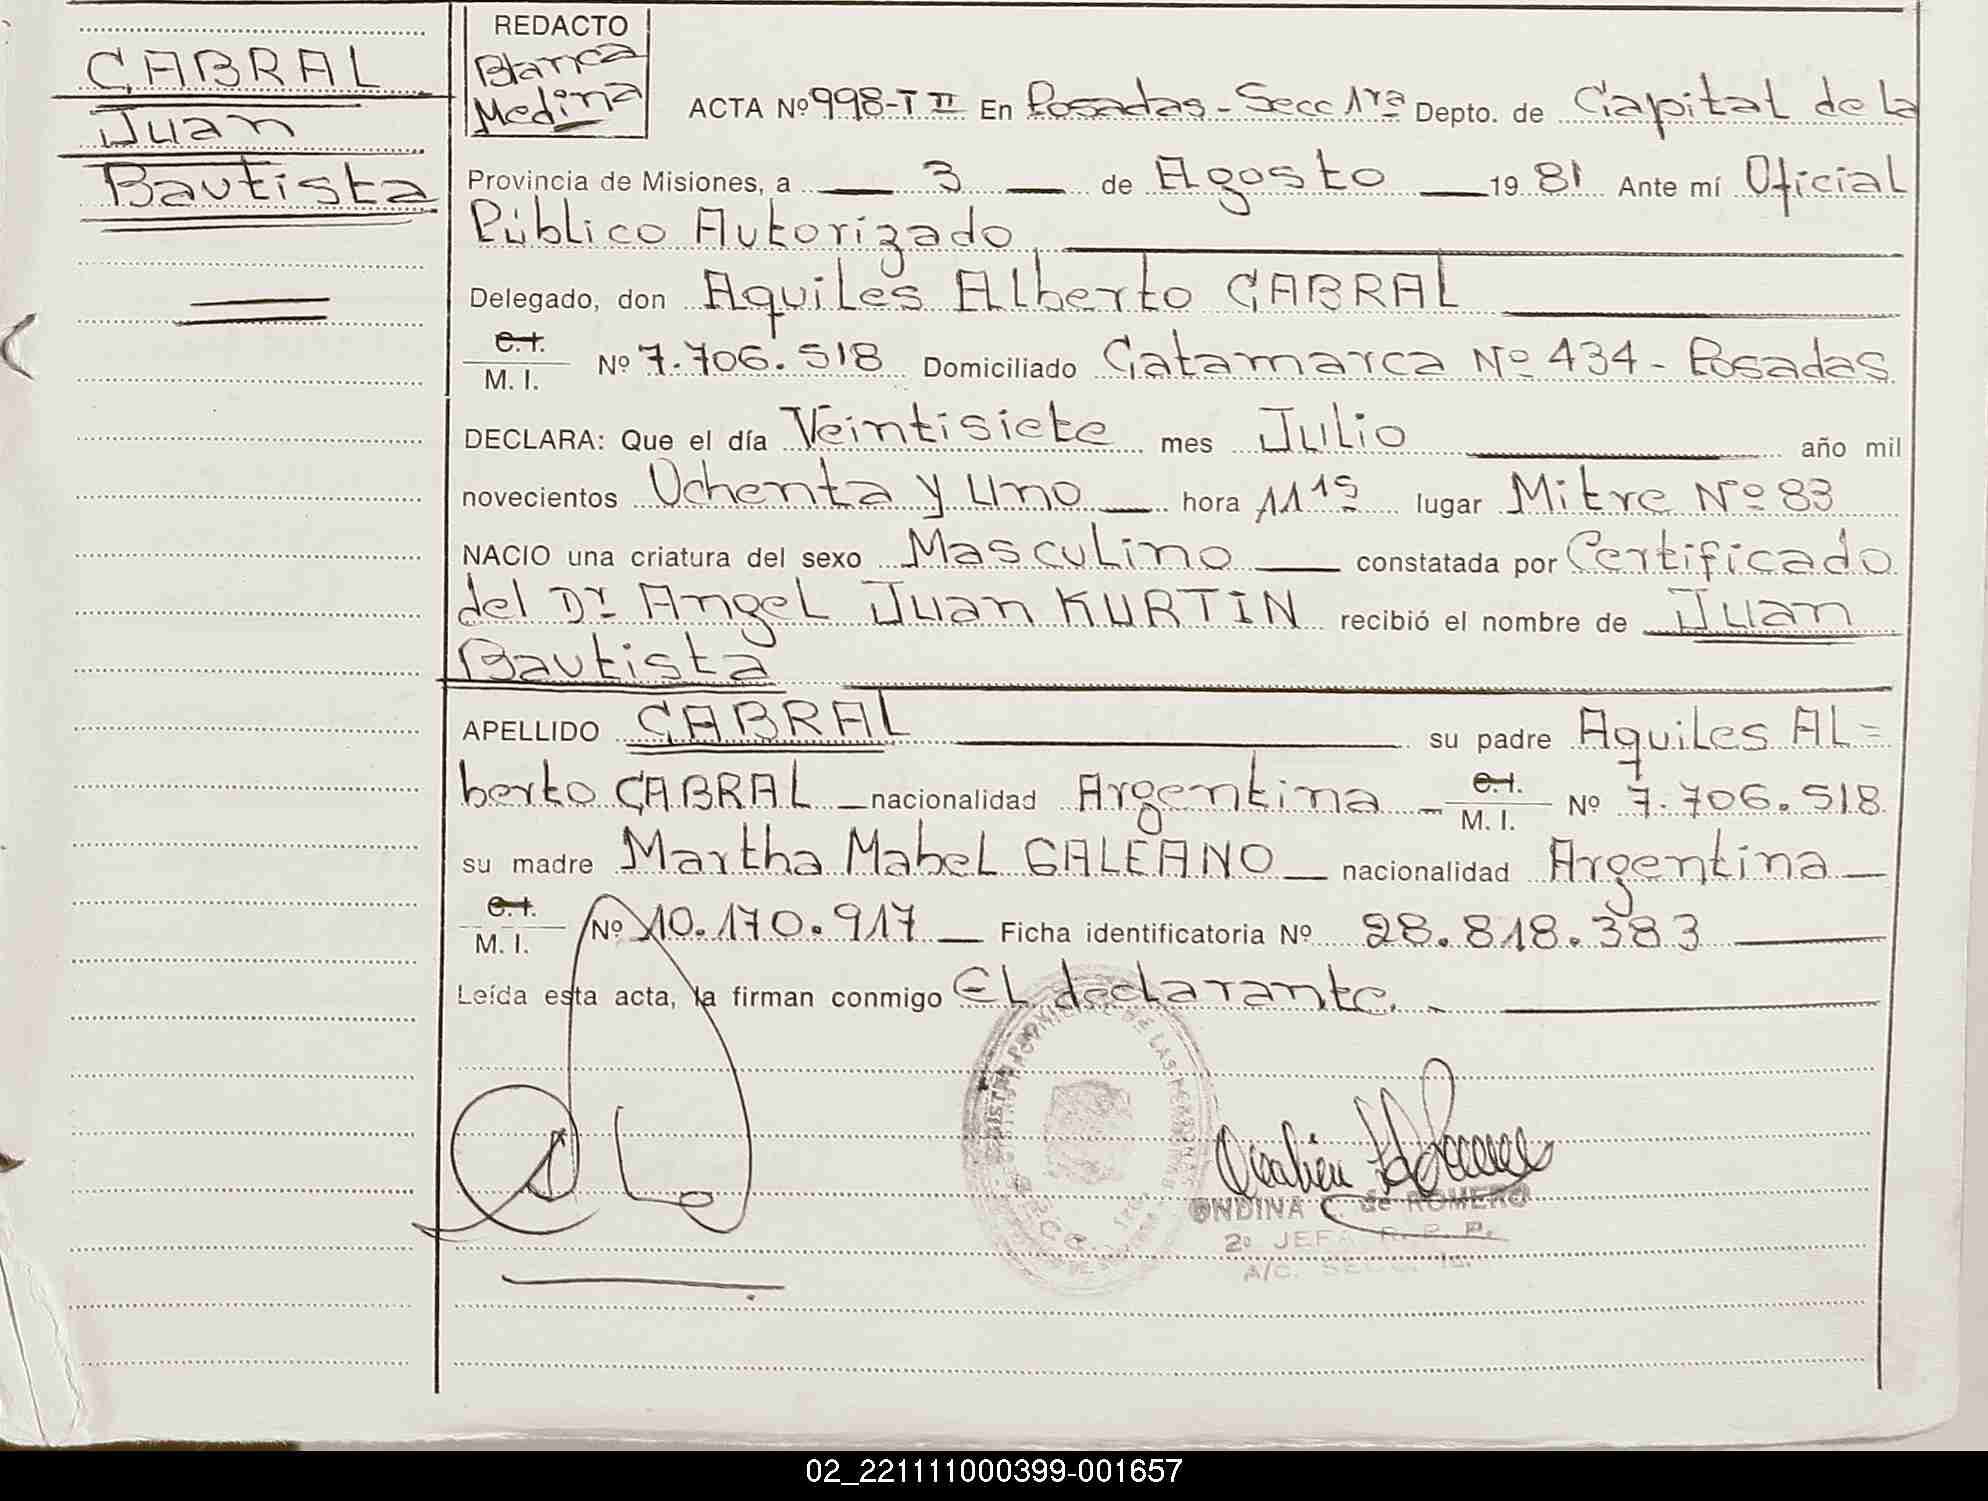 CABRAL
Juan
Bautista
REDACTO
Blanca
Medina
ACTA Nº 998-T II En Posadas - Secc 1ra Depto. de Capital de la
Provincia de Misiones, a 3 de Agosto 19 81 Ante mí Oficial
Público Autorizado
Delegado, don Aquiles Alberto CABRAL
C.I.
M. I. Nº 7.706.518 Domiciliado Catamarca Nº 434 - Posadas
DECLARA: Que el día Veintisiete mes Julio año mil
novecientos Ochenta y uno hora 11 15 lugar Mitre Nº 83
NACIO una criatura del sexo Masculino constatada por Certificado
del Dr. Angel Juan KURTIN recibió el nombre de Juan
Bautista
APELLIDO CABRAL su padre Aquiles Al=
berto CABRAL nacionalidad Argentina C.I. M. I. Nº 7.706.518
su madre Martha Mabel GALEANO nacionalidad Argentina
C.I.
M. I. Nº 10.170.917 Ficha identificatoria Nº 28.818.383
Leída esta acta, la firman conmigo El declarante.
DE LAS PERSONAS
ONDINA C. de ROMERO
2º JEFA R. P. P.
A/C. SECC. 1a.
02_221111000399-001657